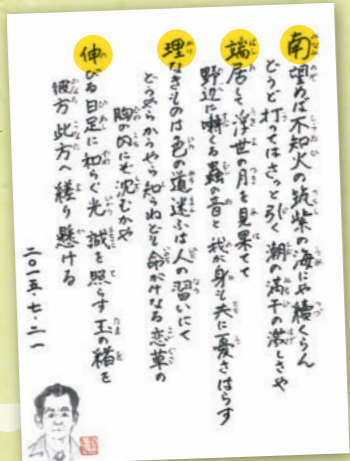 南望めば不知火の筑紫の海にや續くらん
どうど打ってはさっと引く潮の満干の激しさや
端居して浮世の月を見果てて
野辺に くる蟲の音と我が身も共に憂さはらす
理なきものは色の道迷ふは人の習いにて
どうやらかうやら知らねども命がけなる恋草の
胸の内にぞ沈むかや
伸びる日足に和らぐ光 誠を照らす玉の緒を
彼方此方へ縒り懸ける
二〇一五・七・二一